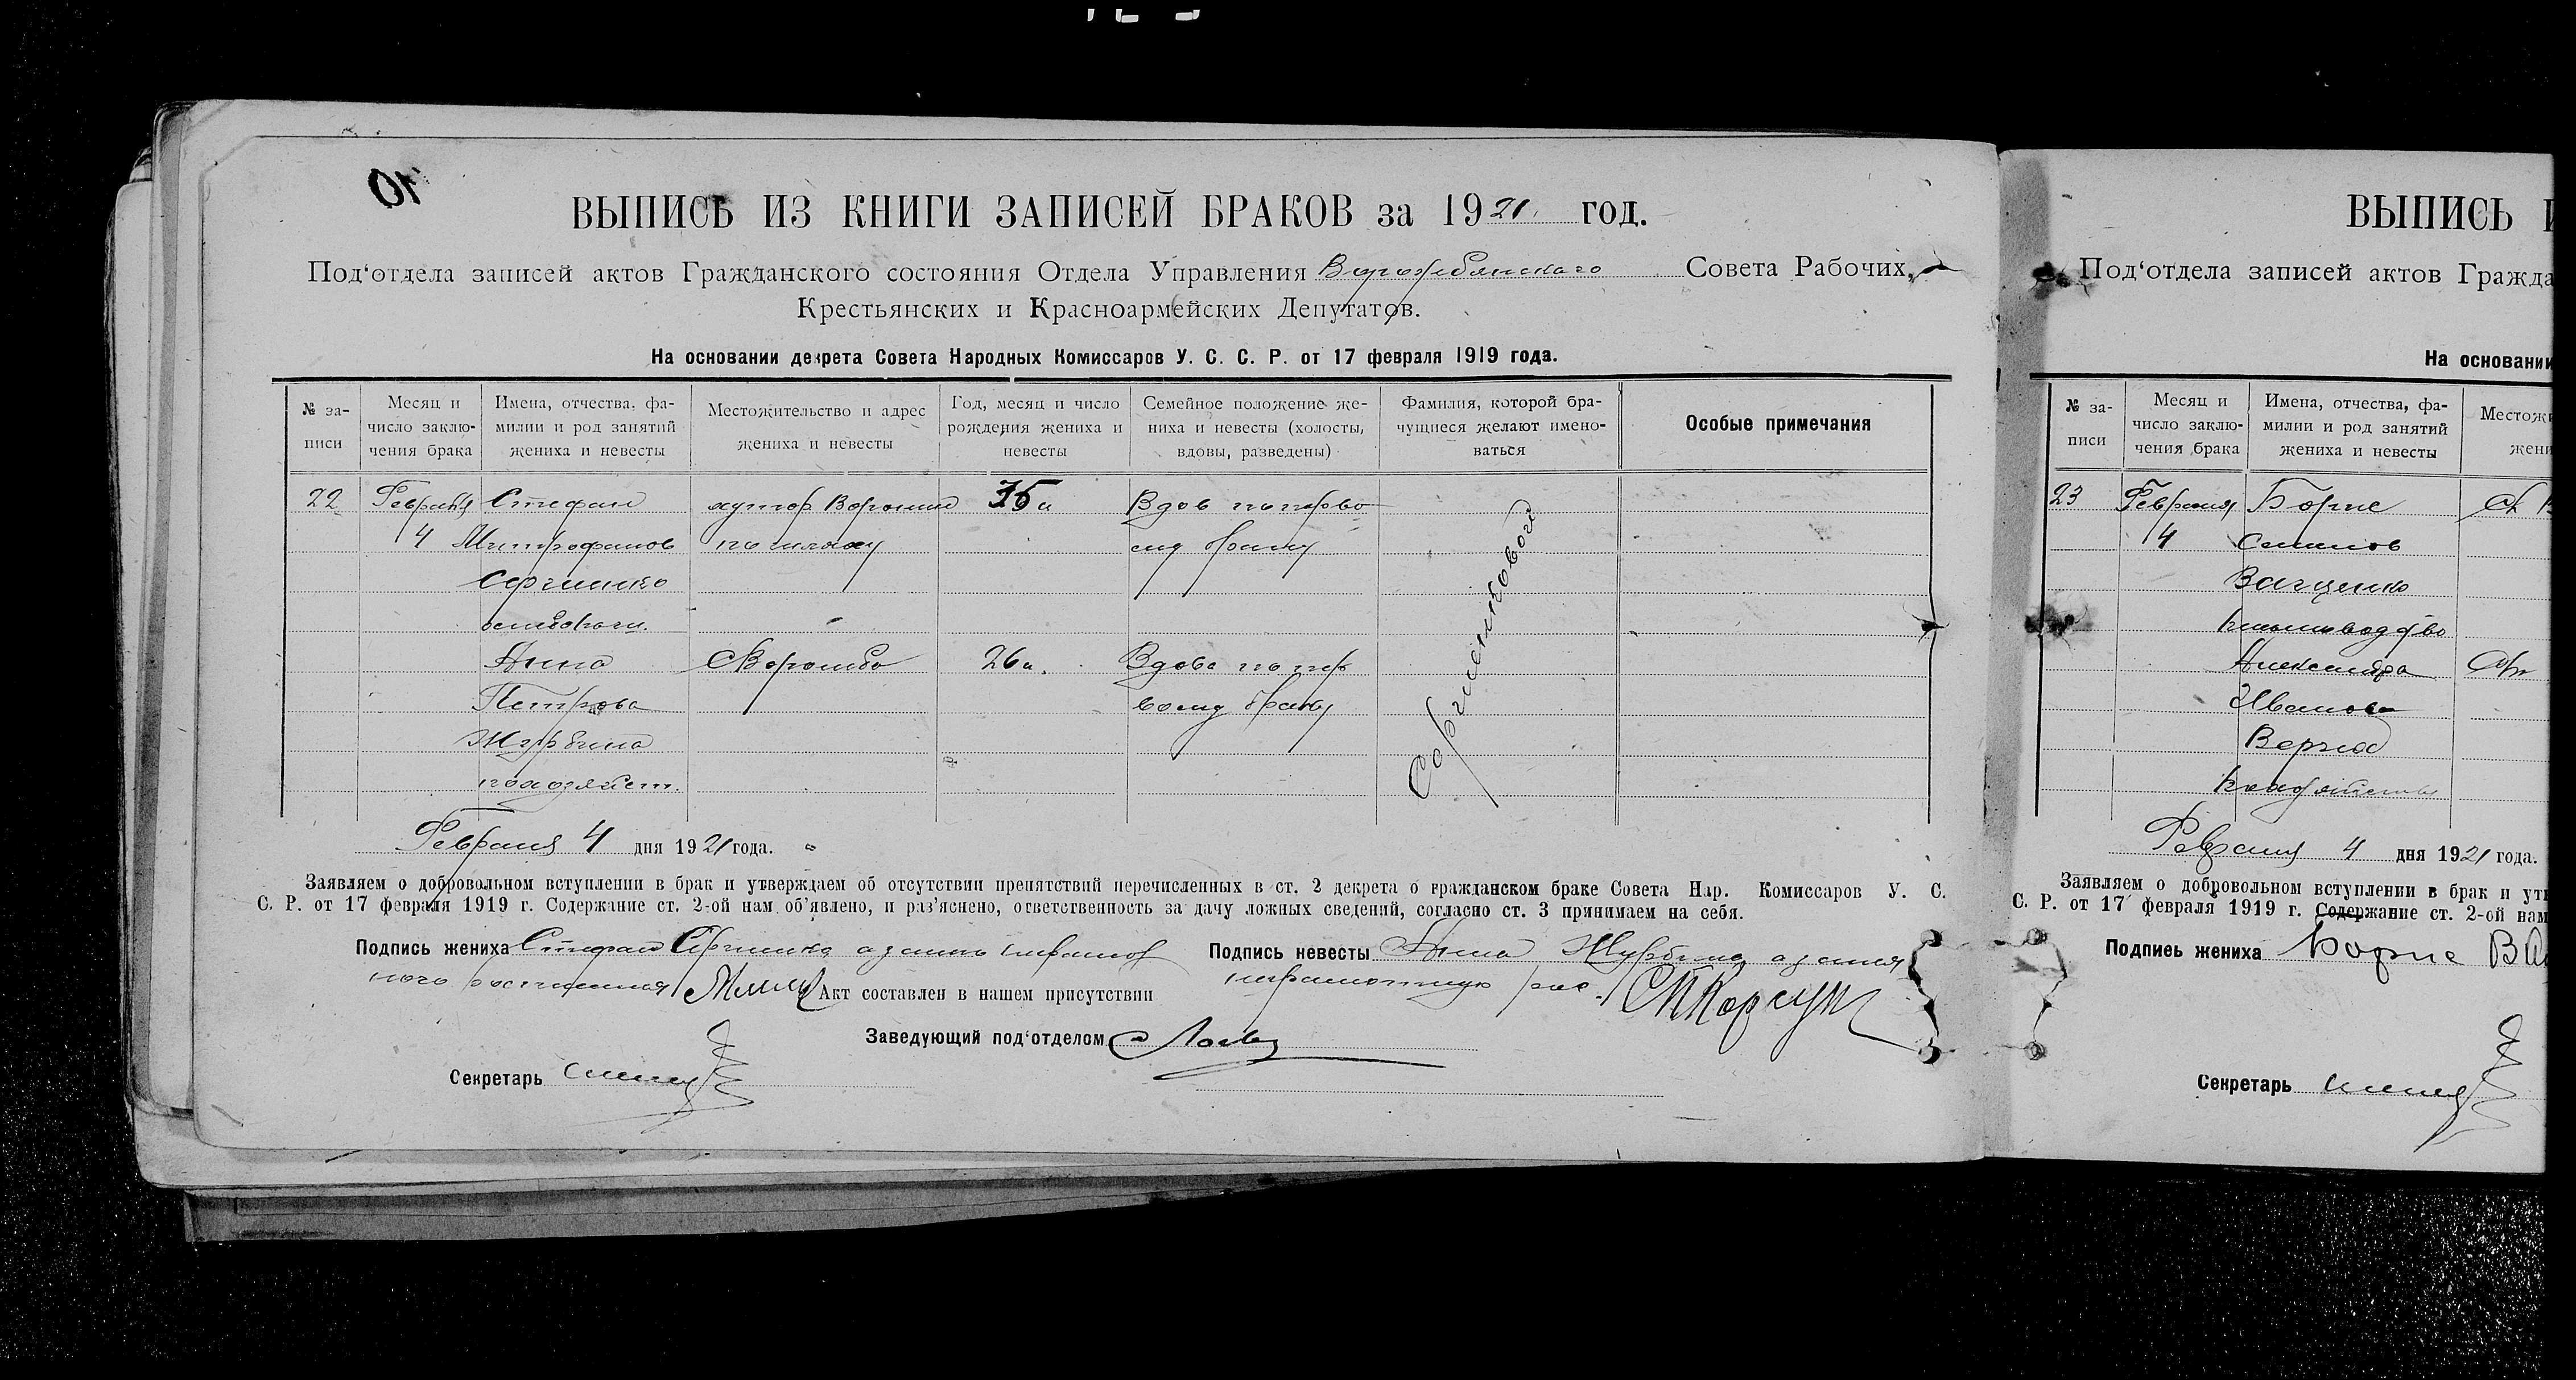 10
ВЫПИСЬ ИЗ КНИГИ ЗАПИСЕЙ БРАКОВ за 1921 год.
Под‘отдела записей актов Гражданского состояния Отдела Управления Совета Рабочих,
Крестьянских и Красноармейских Депутатов.
На основании декрета Совета Народных Комиссаров У. С. С. Р. от 17 февраля 1919 года.
№ за-писи
Месяц и число заклю-чения брака
Имена, отчества, фа-милии и род занятий жениха и невесты
Местожительство и адрес жениха и невесты
Год, месяц и число рождения жениха и невесты
Семейное положение же-ниха и невесты (холосты, вдовы, разведены)
Фамилия, которой бра-чущиеся желают имено-ваться
Особые примечания
22 Февраля Стефан хутор 35 л Вдов по перво
4 Митрофанов му браку
Сергиенко
Анна 26 л. Вдова по пер
Петрова вому браку
Журбина
Сергиенкова
Февраля 4 дня 1921 года.
Заявляем о добровольном вступлении в брак и утверждаем об отсутствии препятствий перечисленных в ст. 2 декрета о гражданском браке Совета Нар. Комиссаров У. С.
С. Р. от 17 февраля 1919 г. Содержание ст. 2-ой нам об‘явлено, и раз‘яснено, ответственность за дачу ложных сведений, согласно ст. 3 принимаем на себя.
Подпись жениха Стефан Сергиенко а за него неграмот
ного расписался
Подпись невесты Анна Журбина а за нея
неграмотную рас.
Акт составлен в нашем присутствии
Заведующий под‘отделом
Секретарь
ВЫПИСЬ И
Под‘отдела записей актов Гражда
На основании
№ за-писи
Месяц и число заклю-чения брака
Имена, отчества, фа-милии и род занятий жениха и невесты
Местож
жени
23 Февраля Борис
4 Семенов
Ващенко
Александра
Иванова
Февраля 4 дня 1921 года.
Заявляем о добровольном вступлении в брак и ут
С. Р. от 17 февраля 1919 г. Содержание ст. 2-ой нам
Подпись жениха Борис Ва
Секретарь